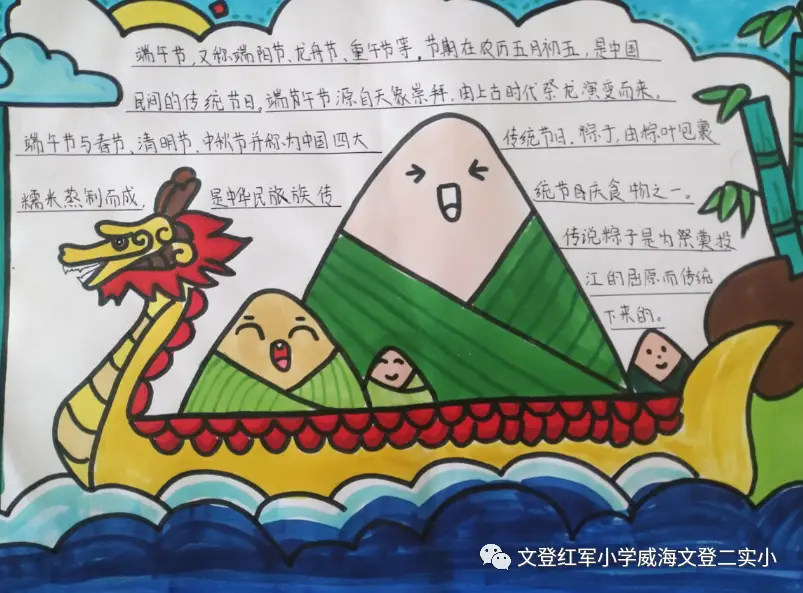 端午节,又称端阳节、龙舟节、重午节等。节期在农历五月初五,是中国
民间的传统节日。端午节源自天象崇拜,由上古时代祭龙演变而来。
端午节与春节、清明节、中秋节并称为中国四大 传统节日。粽子,由粽叶包裹
糯米蒸制而成, 是中华民族族传 统节日庆食物之一。
传说粽子是为祭奠投
江的屈原而传统
下来的。
文登红军小学威海文登二实小